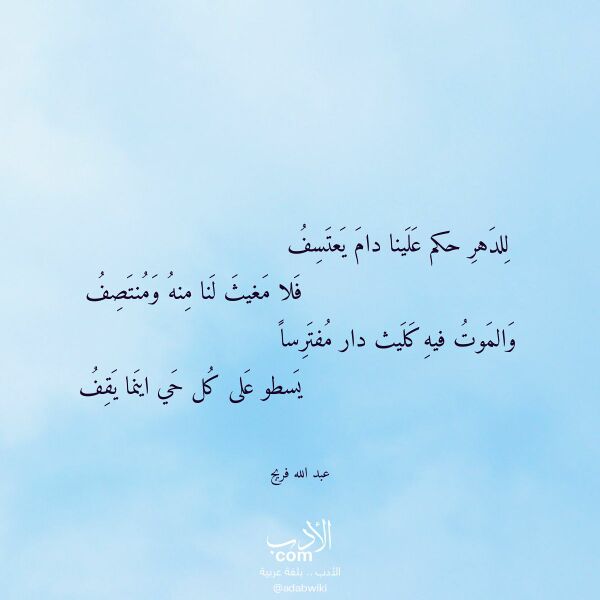 لِلدَهرِ حكم عَلَينا دامَ يَعتَسِفُ
فَلا مَغيثَ لَنا مِنهُ وَمُنتَصِفُ
وَالمَوتُ فيهِ كَلَيث دار مُفتَرِساً
يَسطو عَلى كُل حَي اينَما يَقِفُ
عبد الله فريج
الأدب
.com
الأدب .. بلغة عربية
@adabwiki